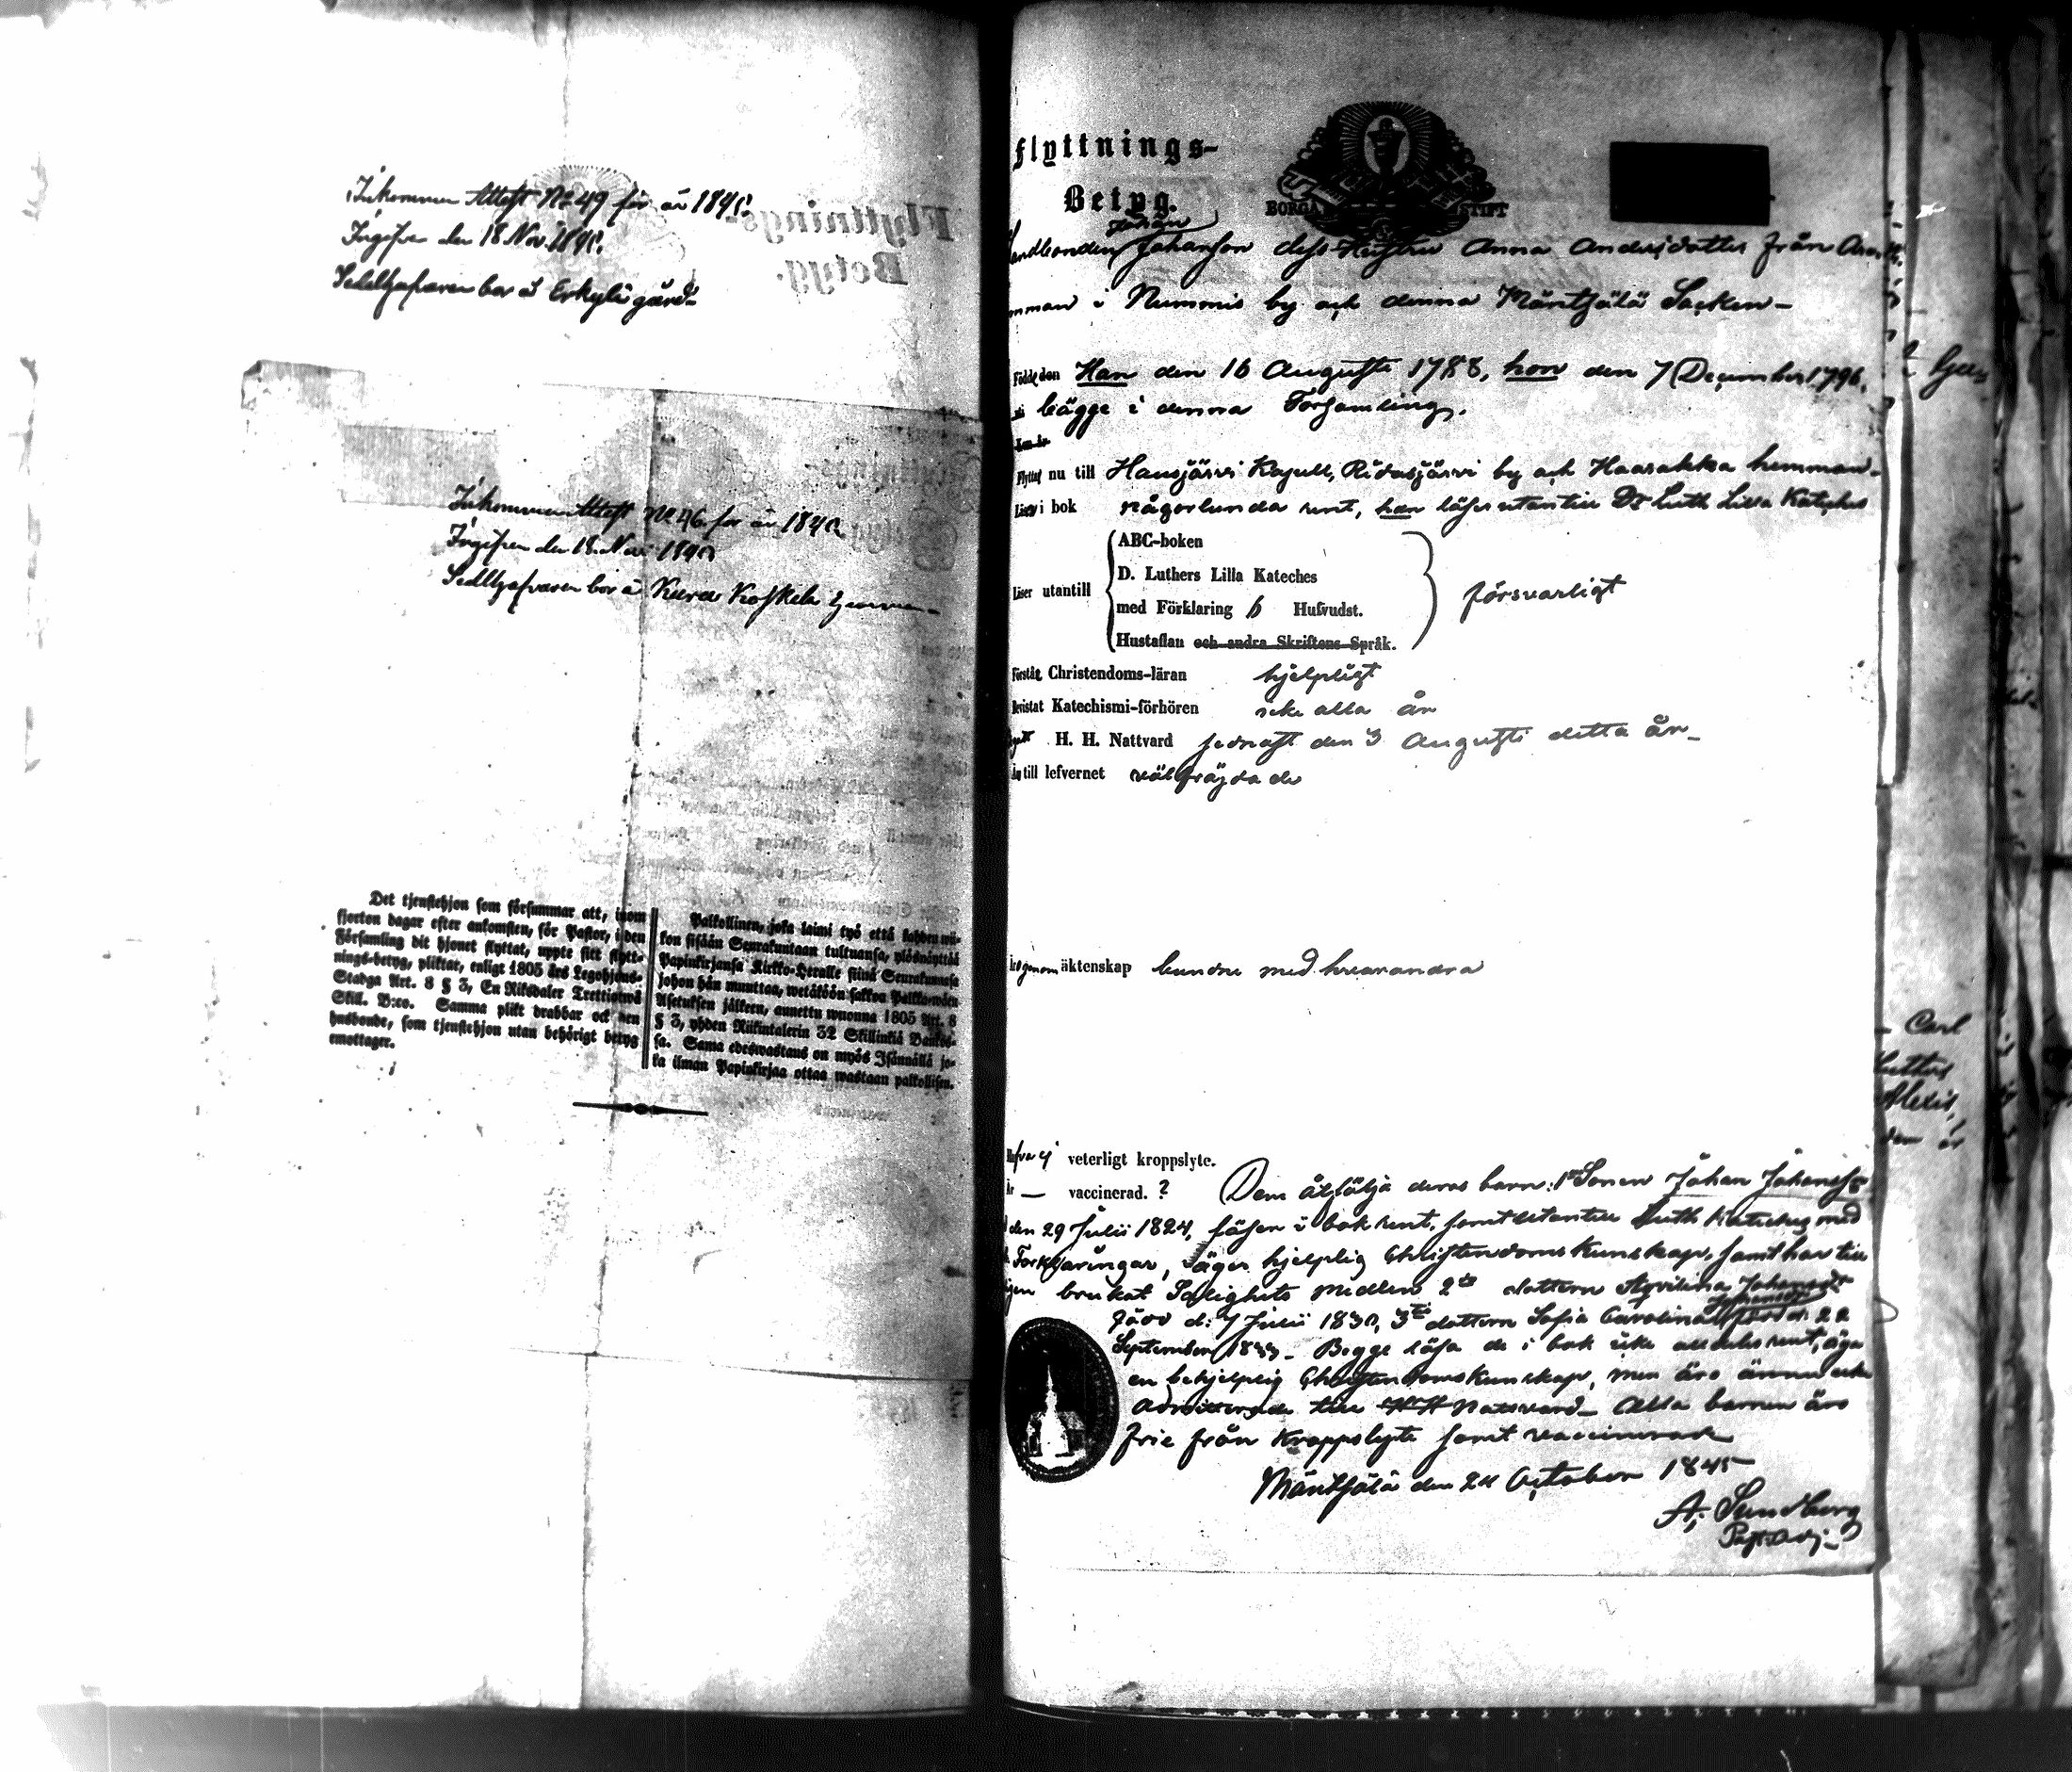 Inkommen Attest No 49 för år 1845.
Ingifven den 18 Nov. 1845.
Sedelhafvaren bor å Erkylä gård
Inkommen Attest No 46 för år 184
Ingifven den 18 Nov 184
Sedelhafvaren bor å Kara Koskela hemman
Det tjenstehjon som försummar att, inom
fjorton dagar efter ankomsten, för Pastor, i den
Församling dit hjonet flyttat, uppte sitt flytt-
nings-betyg, pliktar, enligt 1805 års Legohjons-
Stadga Art. 8 § 3, En Riksdaler Trettiotwå
Skill. B:co. Samma plikt drabbar ock den
husbonde, som tjenstehjon utan behörigt betyg
emottager.
Palkollinen, joka laimi lyö että kahden wii-
kon sisään Seurakuntaan tultuansa, ylösnäyttää
Papinkirjansa Kirkko-Herralle siinä Seurakunnassa
johon hän muuttaa, wetäköön sakkoa Palkkowäen
Asetuksen jälkeen, annettu wuonna 1805 Art. 8
§ 3, yhden Riikintalerin 32 Skillinkiä Bankos-
sa. Sama edeswastaus on myös Isännällä jo-
ka ilman Papinkirjaa ottaa wastaan palkollisen.
Flyttnings-
Betyg.
BORGÅ STIFT
Johan
Landbonden Johansson dess Hustru Anna Andersdotter från
hemman i Nummis by och denna Mäntsälä Socken
Födde den Han den 16 Augusti 1788, hon den 7 December 1796,
bägge i denna Församling.
Flyttat nu till Hausjärvi Kapell, Ridasjärvi by och Haarakka hemman
Läser i bok någorlunda rent, han läser utantill Dr Luth Lilla Katches
ABC-boken
D. Luthers Lilla Kateches
Läser utantill
med Förklaring Hufvudst.
försvarligt
Hustaflan och andra Skriftens Språk.
Förstår Christendoms-läran hjelpligt
Bevistat Katechismi-förhören icke alla år
H. H. Nattvard sednast den 3 Augusti detta år
till lefvernet välfrägdade
genom äktenskap bundne med hvarandra
Hafva ej veterligt kroppslyte.
Är — vaccinerad. ? Dem åtfölja deras barn: 1o Sonen Johan Johansson
den 29 Julii 1824, läser i bok rent, samt utantill Luth Kateches med
Förklaringar, äger hjelplig Christendoms Kunskap, samt har
brukat Salighets medlen 2o dottern Johansdr
född d: 7 Julii 1830, 3o dottern Sofia Carolina Johansdr född d. 22
September 1833 Begge läsa de i bok icke alldeles rent, äga
en behjelplig Christendoms Kunskap, men äro ännu icke
admitterade till H H Nattvard Alla barnen äro
frie från kroppslyte samt vaccinerade
Mäntsälä den 24 October 1845
A. Sundberg
Past. Adj.
Carl